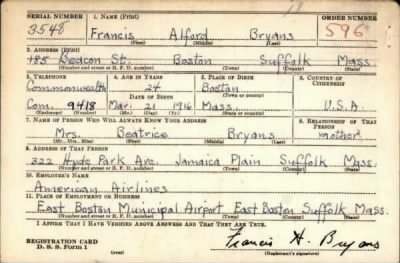 18
SERIAL NUMBER 1. NAME (Print) ORDER NUMBER
3548 Francis Alford Bryans 596
(First) (Middle) (Last)
2. ADDRESS (Print)
185 Beacon St. Boston Suffolk Mass.
(Number and street or R. F. D. number) (Town) (County) (State)
3. TELEPHONE 4. AGE IN YEARS 5. PLACE OF BIRTH 6. COUNTRY OF CITIZENSHIP
Commonwealth 24 Boston
DATE OF BIRTH (Town or county)
Com. 9418 Mar. 21 1916 Mass. U.S.A.
(Exchange) (Number) (Mo.) (Day) (Yr.) (State or country)
7. NAME OF PERSON WHO WILL ALWAYS KNOW YOUR ADDRESS 8. RELATIONSHIP OF THAT PERSON
Mrs. Beatrice Bryans mother
(Mr., Mrs., Miss) (First) (Middle) (Last)
9. ADDRESS OF THAT PERSON
322 Hyde Park Ave. Jamaica Plain Suffolk Mass.
(Number and street or R. F. D. number) (Town) (County) (State)
10. EMPLOYER'S NAME
American Airlines
11. PLACE OF EMPLOYMENT OR BUSINESS
East Boston Municipal Airport East Boston Suffolk Mass.
(Number and street or R. F. D. number) (Town) (County) (State)
I AFFIRM THAT I HAVE VERIFIED ABOVE ANSWERS AND THAT THEY ARE TRUE.
REGISTRATION CARD
D. S. S. Form 1 (over) Francis A. Bryans
(Registrant's signature)